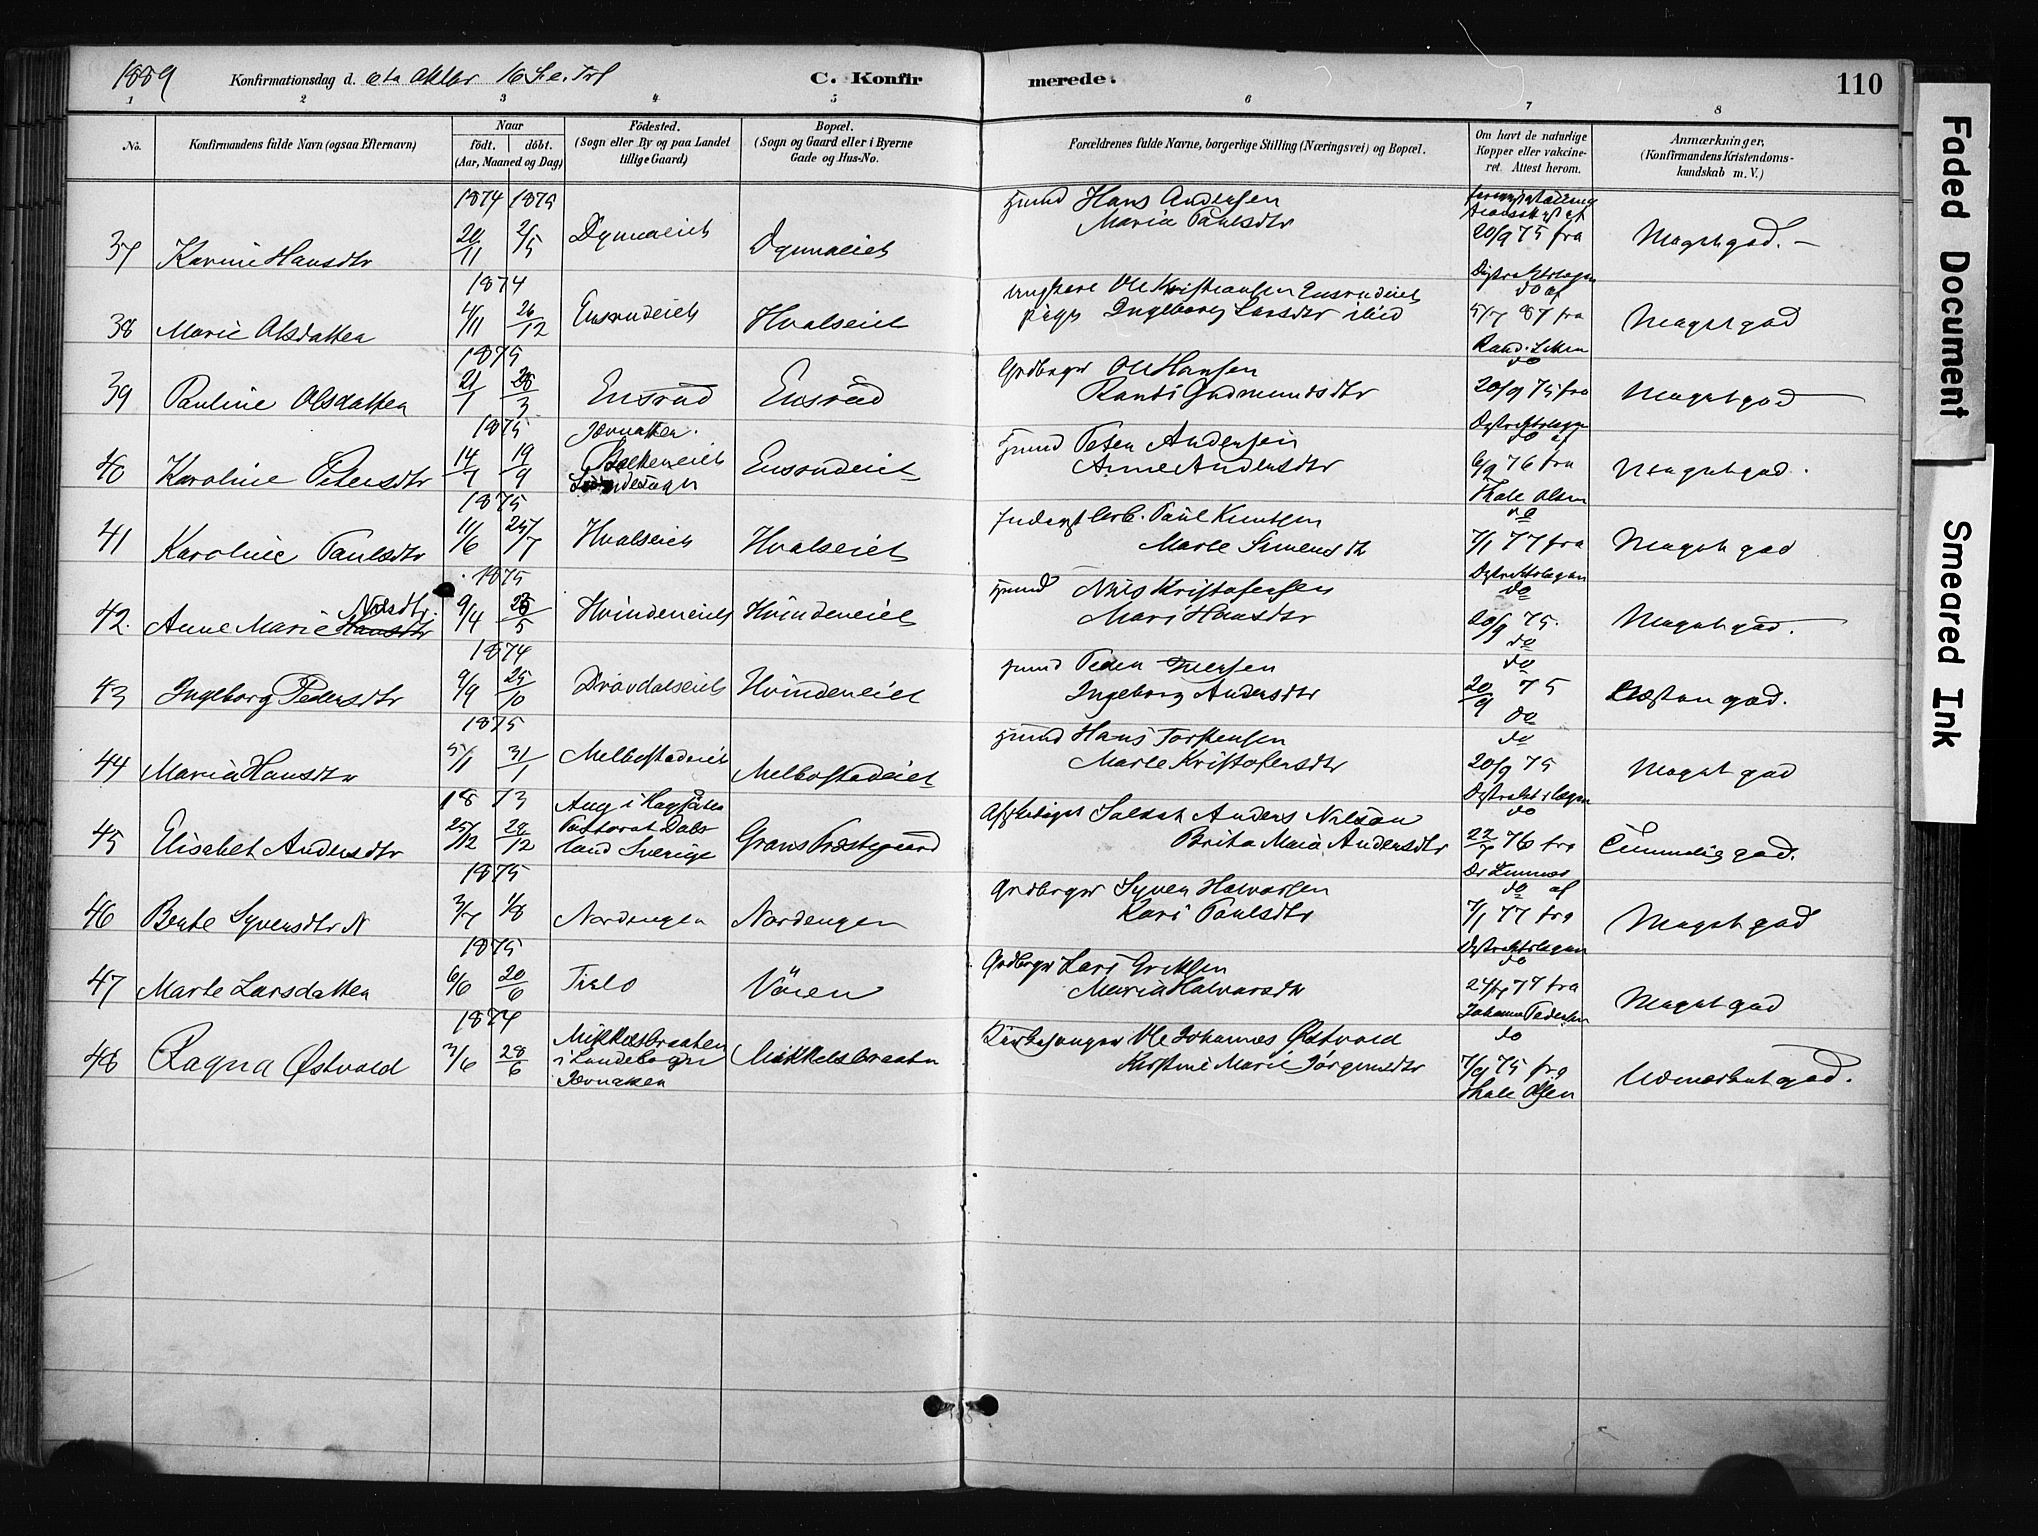 1889 Konfirmationsdag d. 6te Oktbr 16 S. e. Trf C. Konfirmerede. 110
1 2 3 4 5 6 7 8
No. Konfirmandens fulde Navn (ogsaa Efternavn) Naar født. døbt. (Aar, Maaned og Dag) Fødested. (Sogn eller By og paa Landet tillige Gaard) Bopæl. (Sogn og Gaard eller i Byerne Gade og Hus-No. Forældrenes fulde Navne, borgerlige Stilling (Næringsvei) og Bopæl. Om havt de naturlige Kopper eller vakcineret. Attest herom. Anmærkninger, (Konfirmandens Kristendomskundskab m. V.)
1874 1875
37 Karine Hansdtr 20/11 2/5 Dynnaeiet Dynnaeiet Hans Andersen
Maria Paulsdtr 20/9 75 fra Distriktslægen Meget god. –
1874
38 Marie Olsdatten 4/11 26/12 Ensrudeiet Hvalseiet Ungkarl Ole Kristiansen Ensrudeiet
pige Ingeborg Larsdtr ibid do af 5/7 87 fra Rand. Meget god
1875
39 Pauline Olsdatten 21/1 28/3 Ensrud Ensrud Grdbrger Ole Hansen
Randi Gudmundsdtr do 20/9 75 fra Distriktslægen Meget god
1875
40 Karoline Petersdtr 14/7 19/9 Jevnaker. Bækkeneiet Ensrudeiet Peter Andersen
Anne Andersdtr do af 6/9 76 fra Thale Olsen Meget god.
1875
41 Karoline Paulsdtr 11/6 25/7 Hvalseiet Hvalseiet Inderst Arb. Paul Knutsen
Marte Simensdtr do 7/1 77 fra Distriktslægen Meget god
1875
42. Anne Marie Hansdtr Nilsdtr. 9/4 /5 Hvindeneiet Hvindeneiet Nils Kristofersen
Mari Hansdtr do 20/9 75. do Meget god.
1874
43 Ingeborg Pedersdtr 9/9 25/10 Drøvdalseiet Hvindeneiet Peder Iversen
Ingeborg Andersdtr do 20/9 75 do Næsten god.
1875
44 Maria Hansdtr 5/1 31/1 Melbostadeiet Melbostadeiet Hans Torstensen
Marte Kristofersdtr do 20/9 75 Distriktslægen Meget god
1873
45 Elisabet Andersdtr 25/12 28/12 Pastorat Dalsland Sverige Grans Præstegaard Afskediget Soldat Anders Nilsson
Brita Maia Andersdtr do 22/7 76 fra Dr Meget god.
1875
46 Berte Syversdtr N 3/7 1/8 Nordengen Nordengen Grdbrger Syver Halvorsen
Kari Paulsdtr do af 7/1 77 fra Distriktslægen Meget god
1875
47 Marte Larsdatten 6/6 20/6 Tislo Vøien Grdbrger Lars Eriksen
Maria Halvorsdtr do 77 fra Johanne Pedersen Meget god
1874
48 Ragna Østvold 3/6 28/6 Mikkelsbraaten i Lundebogn Jevnaker Mikkelsbraaten Kirkesanger Ole Johannes Østvold
Kirstine Marie Jørgensdtr do 7/9 75 fra Thale Olsen Udmerket god.
Faded Document
Smeared Ink